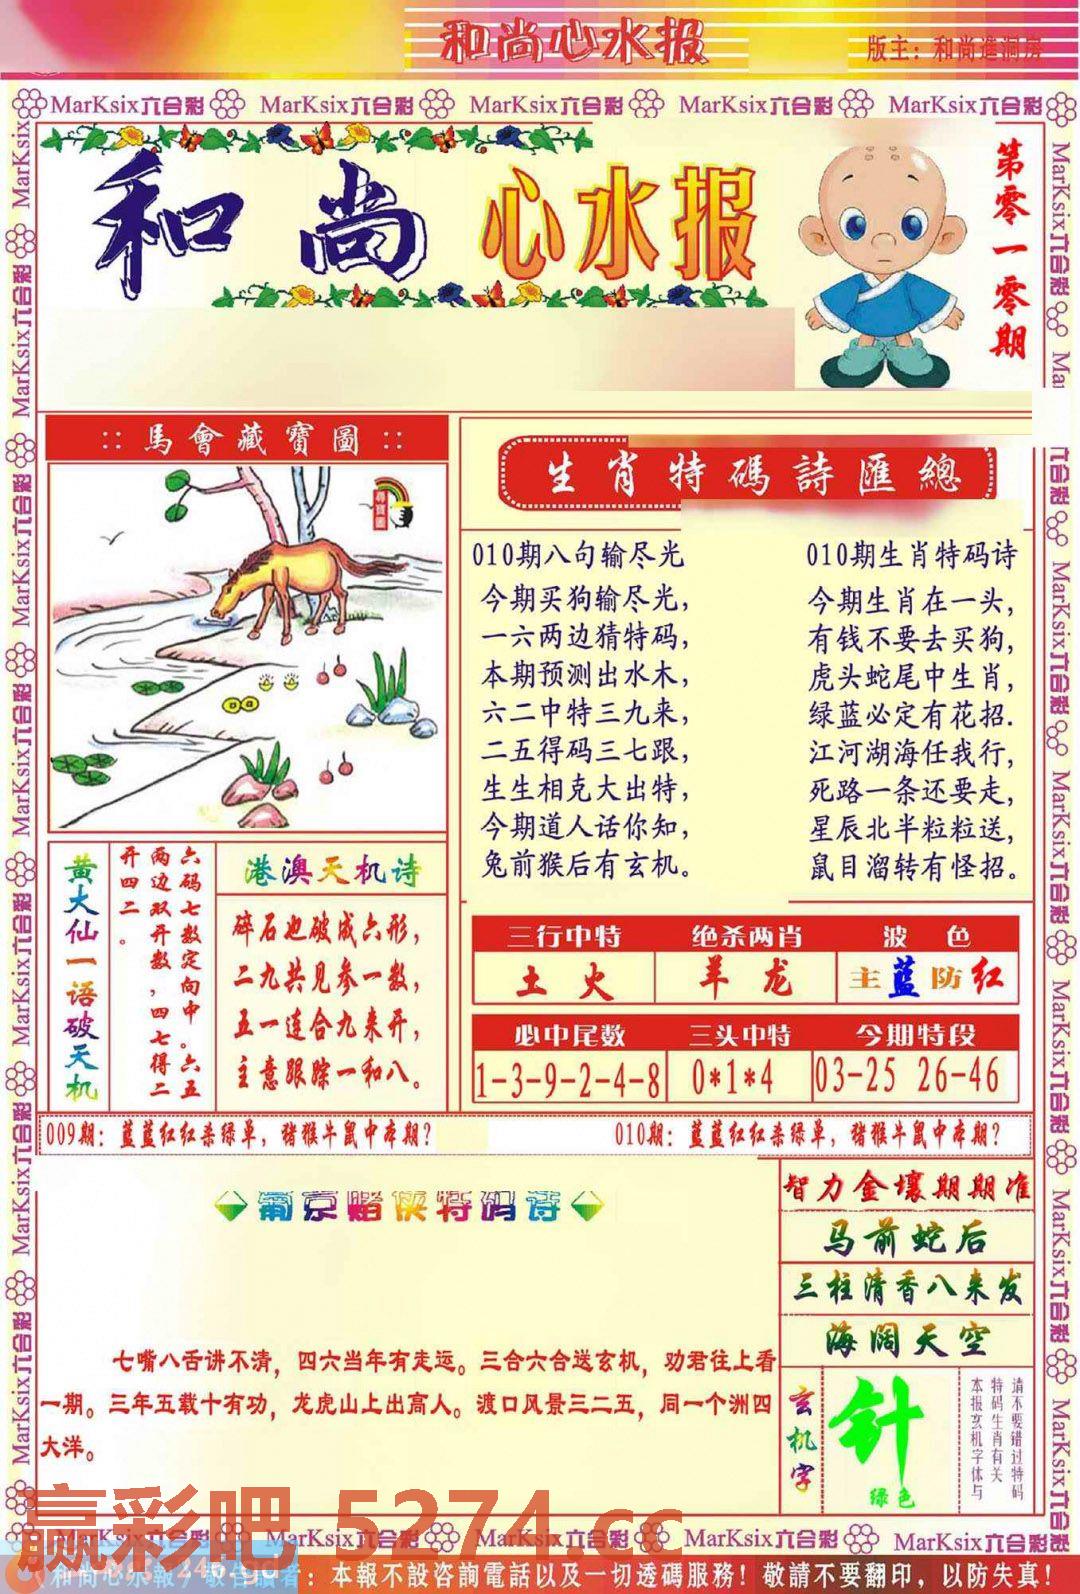 和尚心水报
版主：和尚進洞房
MarKsix六合彩 MarKsix六合彩 MarKsix六合彩 MarKsix六合彩 MarKsix六合彩
和尚 心水报
第零一零期
:: 馬會藏寶圖 ::
尋寶圖
生肖特碼詩匯總
010期八句输尽光
今期买狗输尽光，
一六两边猜特码，
本期预测出水木，
六二中特三九来，
二五得码三七跟，
生生相克大出特，
今期道人话你知，
兔前猴后有玄机。
010期生肖特码诗
今期生肖在一头，
有钱不要去买狗，
虎头蛇尾中生肖，
绿蓝必定有花招.
江河湖海任我行，
死路一条还要走，
星辰北半粒粒送，
鼠目溜转有怪招。
黄大仙一语破天机
六码七数定向中。六五
两边双开数，四七得二
开四二。
港澳天机诗
碎石也破成六形，
二九共见参一数，
五一连合九来开，
主意跟踪一和八。
三行中特 绝杀两肖 波 色
土 火 羊 龙 主蓝防红
必中尾数 三头中特 今期特段
1-3-9-2-4-8 0*1*4 03-25 26-46
009期：蓝蓝红红杀绿单，猪猴牛鼠中本期？
010期：蓝蓝红红杀绿单，猪猴牛鼠中本期？
葡京赌侠特码诗
七嘴八舌讲不清，四六当年有走运。三合六合送玄机，劝君往上看
一期。三年五载十有功，龙虎山上出高人。渡口风景三二五，同一个洲四
大洋。
智力金壤期期准
马前蛇后
三柱清香八来发
海阔天空
玄机字
针
绿色
请不要错过特码
特码生肖有关
本报玄机字体与
赢彩吧 5274.cc
MarKsix六合彩 MarKsix六合彩 MarKsix六合彩 MarKsix六合彩
和尚心水報/敬告讀者：本報不設咨詢電話以及一切透碼服務！敬請不要翻印，以防失真！